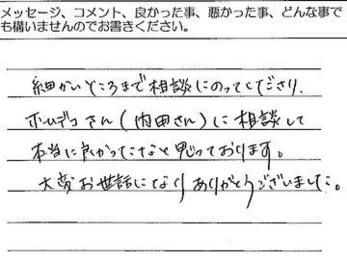 メッセージ、コメント、良かった事、悪かった事、どんな事で
も構いませんのでお書きください。
細かいところまで相談にのってくださり、
ホームデコさん(内田さん)に相談して
本当に良かったなと思っております。
大変お世話になりありがとうございました。